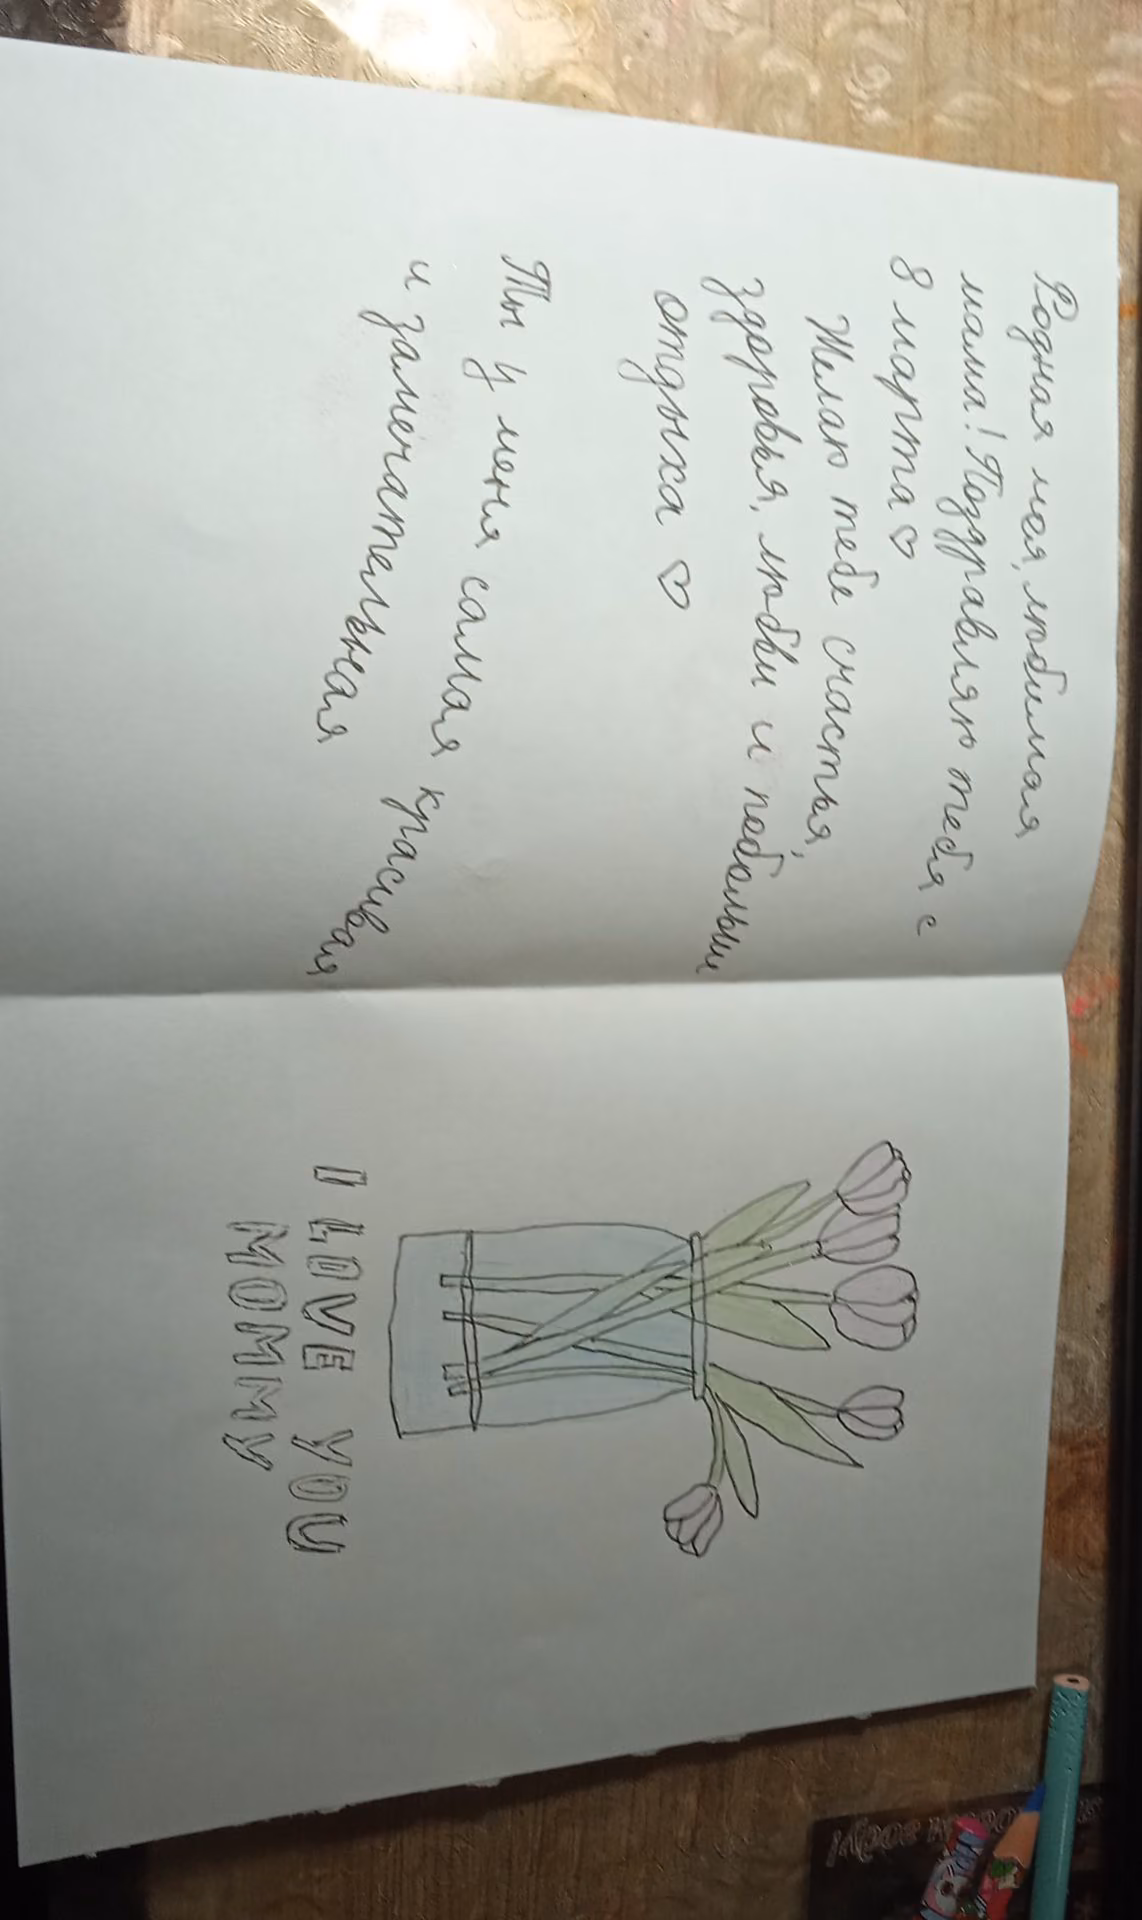 Родная моя, любимая
мама! Поздравляю тебя с
8 марта♡
Желаю тебе счастья,
здоровья, любви и побольше
отдыха ♡
Ты у меня самая красивая
и замечательная
I LOVE YOU
MOMMY